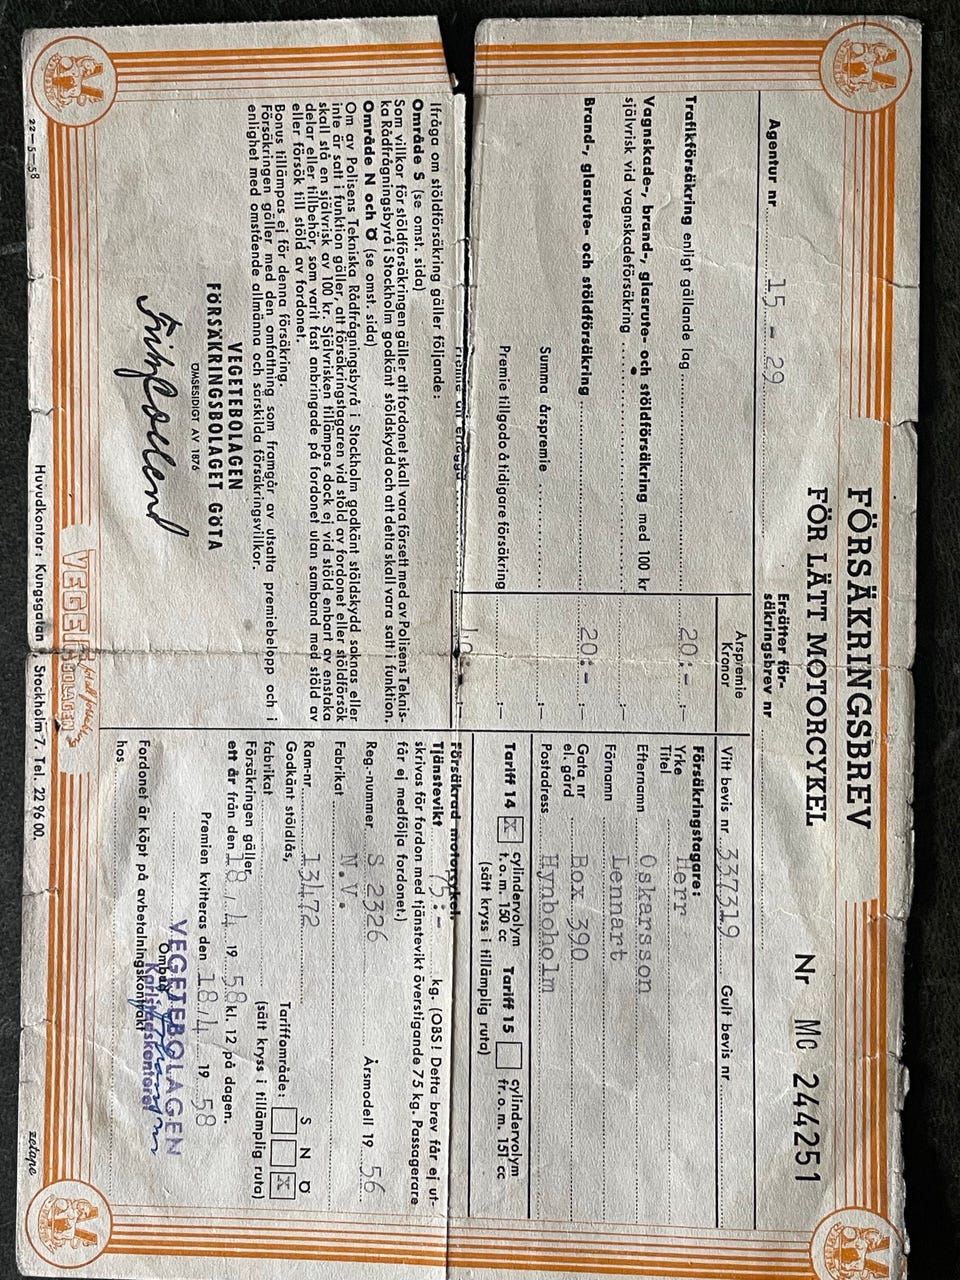 FÖRSÄKRINGSBREV
FÖR LÄTT MOTORCYKEL
Nr MC 244251
Agentur nr 15 - 29
Ersätter för-
säkringsbrev nr
Årspremie
Kronor
Trafikförsäkring enligt gällande lag 20:-
Vagnskade-, brand-, glasrute- och stöldförsäkring med 100 kr
självrisk vid vagnskadeförsäkring :-
Brand-, glasrute- och stöldförsäkring 20:-
Summa årspremie :-
Premie tillgodo å tidigare försäkring :-
Ifråga om stöldförsäkring gäller följande:
Område S (se omst. sida)
Som villkor för stöldförsäkringen gäller att fordonet skall vara försett med av Polisens Teknis-
ka Rådfrågningsbyrå i Stockholm godkänt stöldskydd och att detta skall vara satt i funktion.
Område N och Ö (se omst. sida)
Om av Polisens Tekniska Rådfrågningsbyrå i Stockholm godkänt stöldskydd saknas eller
inte är satt i funktion gäller, att försäkringstagaren vid stöld av fordonet eller stöldförsök
skall stå en självrisk av 100 kr. Självrisken tillämpas dock ej vid stöld enbart av enstaka
delar eller tillbehör, som varit fast anbringade på fordonet utan samband med stöld av
eller försök till stöld av fordonet.
Bonus tillämpas ej för denna försäkring.
Försäkringen gäller med den omfattning som framgår av utsatta premiebelopp och i
enlighet med omstående allmänna och särskilda försäkringsvillkor.
VEGETEBOLAGEN
FÖRSÄKRINGSBOLAGET GÖTA
ÖMSESIDIGT AV 1876
Vitt bevis nr 337319 Gult bevis nr
Försäkringstagare:
Yrke
Titel Herr
Efternamn Oskarsson
Förnamn Lennart
Gata nr
el. gård Box 390
Postadress Hynboholm
Tariff 14 X cylindervolym
t. o. m. 150 cc
Tariff 15 cylindervolym
fr. o. m. 151 cc
(sätt kryss i tillämplig ruta)
Försäkrad motorcykel.
Tjänstevikt 75:- kg. (OBS! Detta brev får ej ut-
skrivas för fordon med tjänstevikt överstigande 75 kg. Passagerare
får ej medfölja fordonet.)
Reg.-nummer S 2326 Årsmodell 19 56
Fabrikat N.V.
Ram-nr 13472
Godkänt stöldlås,
fabrikat
Tariffområde: S N Ö X
(sätt kryss i tillämplig ruta)
Försäkringen gäller
ett år från den 18/4 19 58 kl. 12 på dagen.
Premien kvitteras den 18/4 19 58
VEGETEBOLAGEN
Ombud
Karlstadskontoret
Fordonet är köpt på avbetalningskontrakt
hos
22-5-58
VEGETEBOLAGEN
för all försäkring
Huvudkontor: Kungsgatan Stockholm 7. Tel. 22 96 00.
zetape